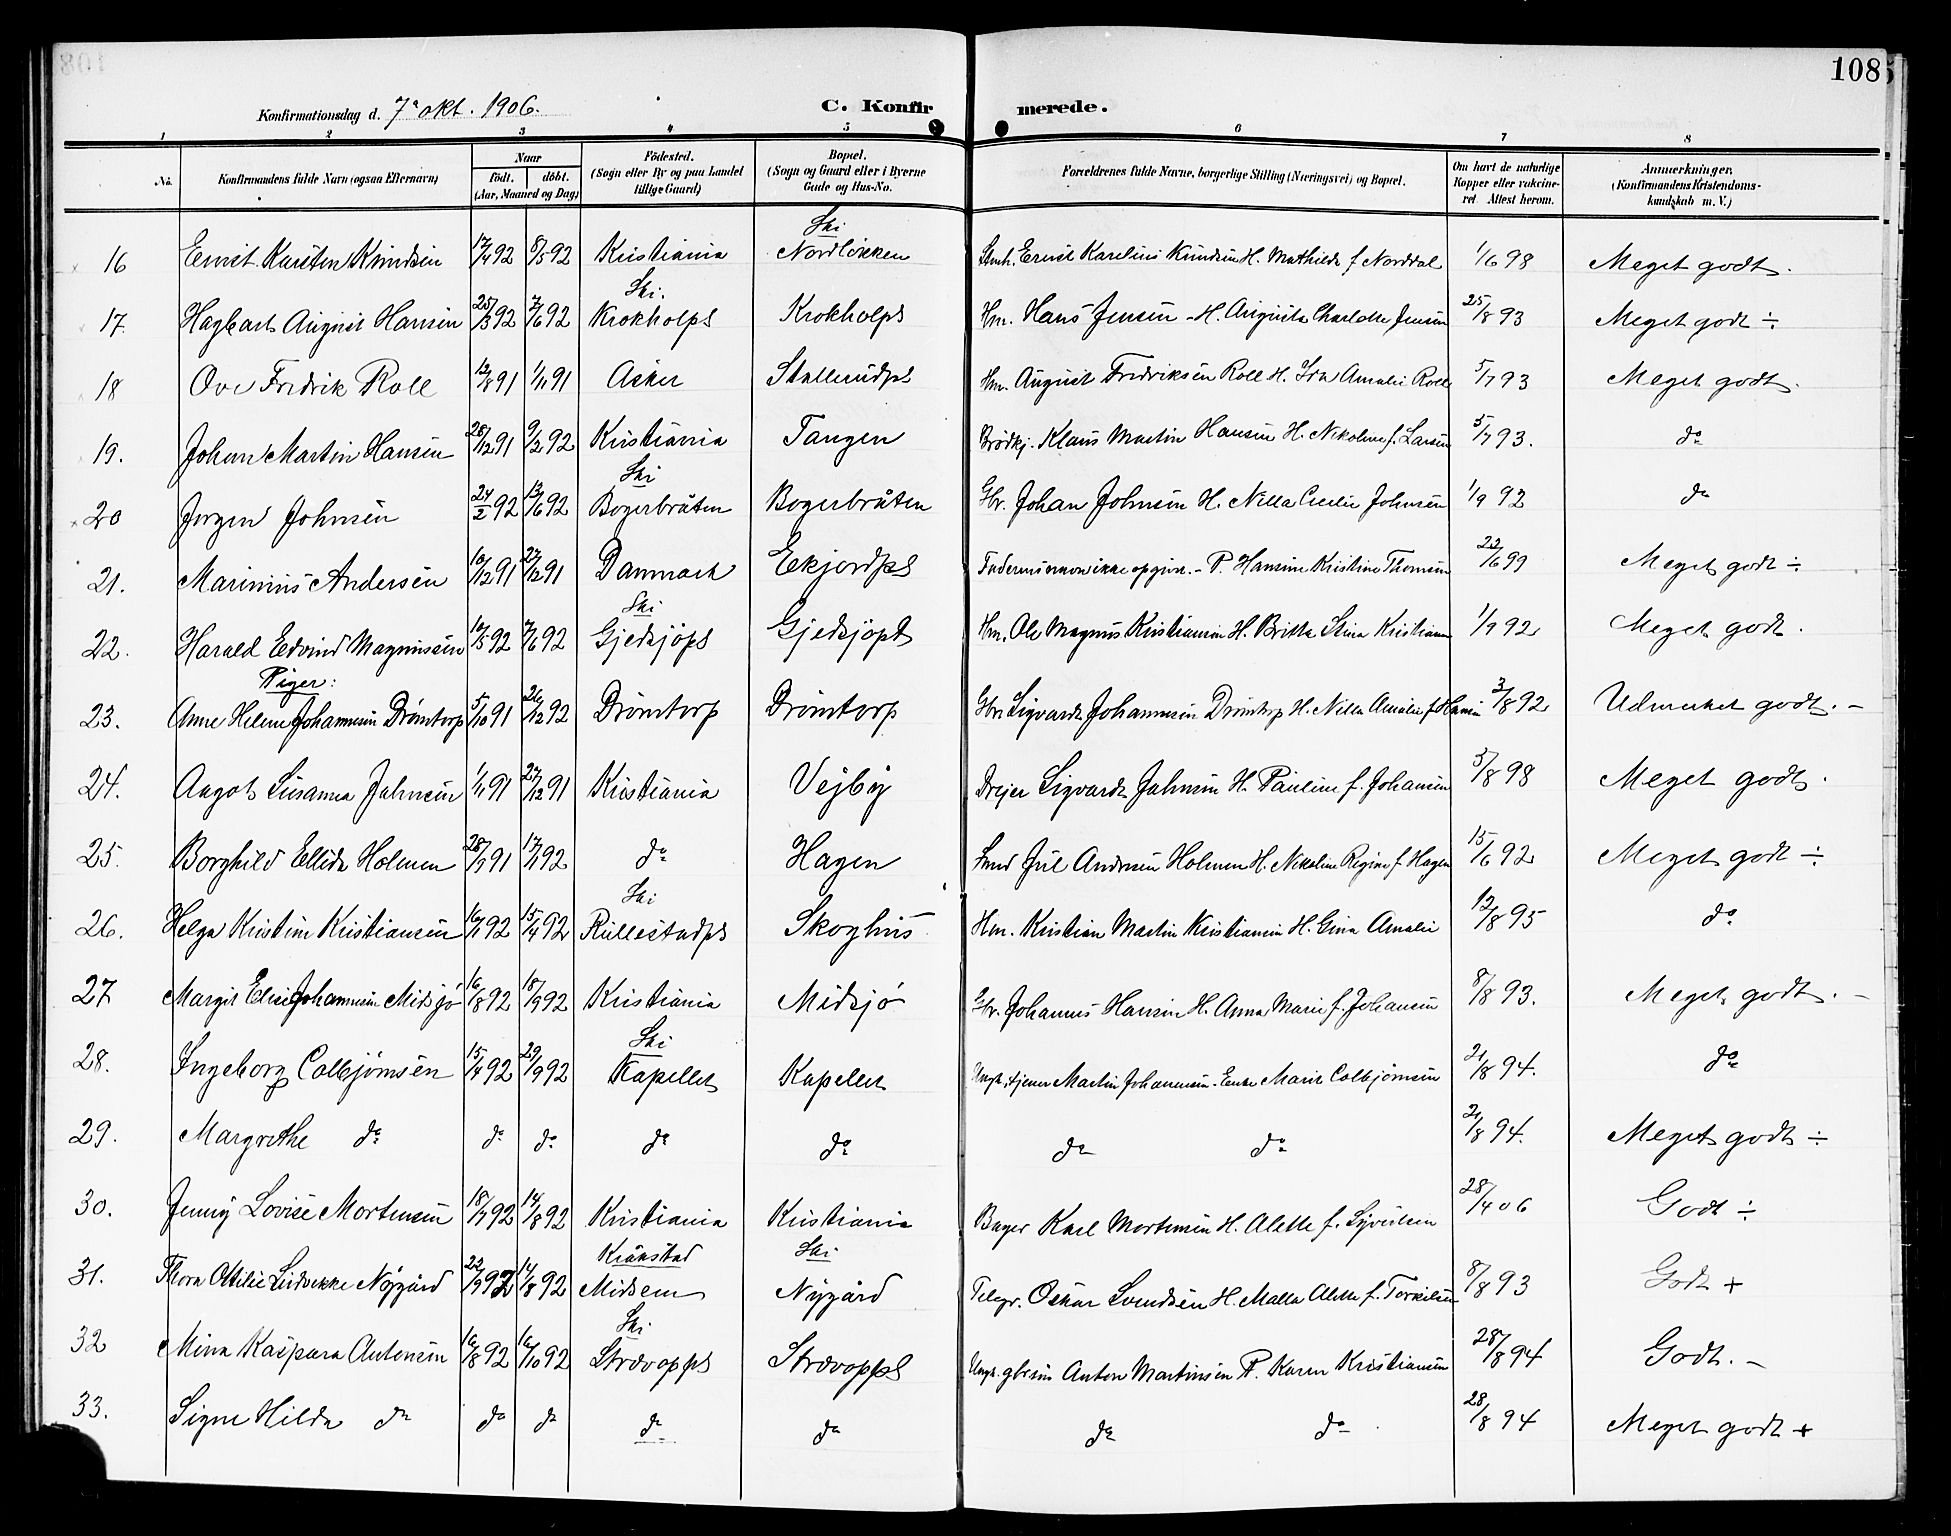 108
Konfirmationsdag d. 7de okt. 1906.
C. Konfirmerede.
1 2 3 4 5 6 7 8
No. Konfirmandens fulde Navn (ogsaa Efternavn) Naar født. døbt. (Aar, Maaned og Dag) Fødested. (Sogn eller By og paa Landet tillige Gaard) Bopæl. (Sogn og Gaard eller i Byerne Gade og Hus-No. Forældrenes fulde Navne, borgerlige Stilling (Næringsvei) og Bopæl. Om havt de naturlige Kopper eller vakcineret. Attest herom. Anmerkninger. (Konfirmandens Kristendomskundskab m. V.)
16 Ernst Karsten Knudsen 17/4 92 8/5 92 Kristiania Ski Nordløkken Ernst Karelius Knudsen H. Mathilde f Norddal 1/6 98 Meget godt.
17. Hagbart August Hansen 25/3 92 7/6 92 Ski. Krokholpl Krokholpl Hm. Hans Jensen - H. Augusta Charlotte Jensen 25/8 93 Meget godt ÷
18 Ove Fredrik Roll 12/8 91 1/11 91 Asker Stallerudpl Hm. August Fredriksen Roll H. Amalie Roll 5/7 93 Meget godt.
19. Johan Martin Hansen 28/12 91 9/2 92 Kristiania Tangen Brödkj. Klaus Martin Hansen H. Nikoline f. Larsen 5/7 93. do
20 Jørgen Johnsen 24/2 92 12/6 92 Ski Bogerbråten Bogerbråten Gbr. Johan Johnsen H. Nilla Cecilie Johnsen 1/9 92 do
21. Marinius Andersen 10/12 91 27/12 91 Danmark Ekjordpl Faderens navn ikke opgivet. - P. Hansine Kristine Thomsen 22/6 99 Meget godt ÷
22. Harald Edvind Magnussen 10/5 92 7/6 92 Ski Gjedsjöpl Gjedsjöpl Hm. Ole Magnus Kristiansen H. Britta Stina Kristiansen 1/9 92 Meget godt.
Piger:
23. Anne Helene Johannesen Drömtorp 5/10 91 26/12 92 Drömtorp Drömtorp Gbr. Sigvardt Johannesen Drömtorp H. Nilla Amalie f Hansen 3/8 92 Udmerket godt. -
24. Aagot Susanna Jahnsen 1/11 91 27/12 91 Kristiania Vejby Drejer Sigvardt Jahnsen H. Pauline f. Johansen 5/8 98 Meget godt.
25. Borghild Ellida Holmen 28/7 91 17/1 92 do Hagen Smed Jul Andresen Holmen H. Nikoline Regine f Hagen 15/6 92 Meget godt ÷
26. Helga Kristine Kristiansen 16/1 92 15/4 92 Ski Rullestadpl Skoghus Hm. Kristian Martin Kristiansen H. Gina Amalie 12/8 95 do
27 Margit Elise Johannesen Midsjø 16/8 92 18/9 92 Kristiania Midsjø Gbr. Johannes Hansen H. Anna Marie f. Johansen 8/8 93. Meget godt. -
28. Ingeborg Colbjørnsen 15/4 92 29/9 92 Ski Kapellet Kapellet Ungk. tjener Martin Johannesen - Enke Marie Colbjørnsen 21/8 94. do
29. Margrethe do do do do do do do 21/8 94. Meget godt ÷
30. Jenny Lovise Mortensen 18/7 92 14/8 92 Kristiania Kristiania Bager Karl Mortensen H. Alette f. Syversen 28/4 06 Godt ÷
31. Thora Otilie Nygård 22/9 92 14/8 92 Kråkstad Midsem Ski Nygård Telegr. Oskar Svendsen H. Malla Alette f. Torkilsen 8/8 93 Godt +
32 Mina Kaspara Antonsen 16/8 92 16/10 92 Ski Strævoppl Strævoppl Ungk. Anton Martinsen P. Karen Kristiansen 28/8 94 Godt. -
33. Signe Hilda do do do do do do do 28/8 94 Meget godt +